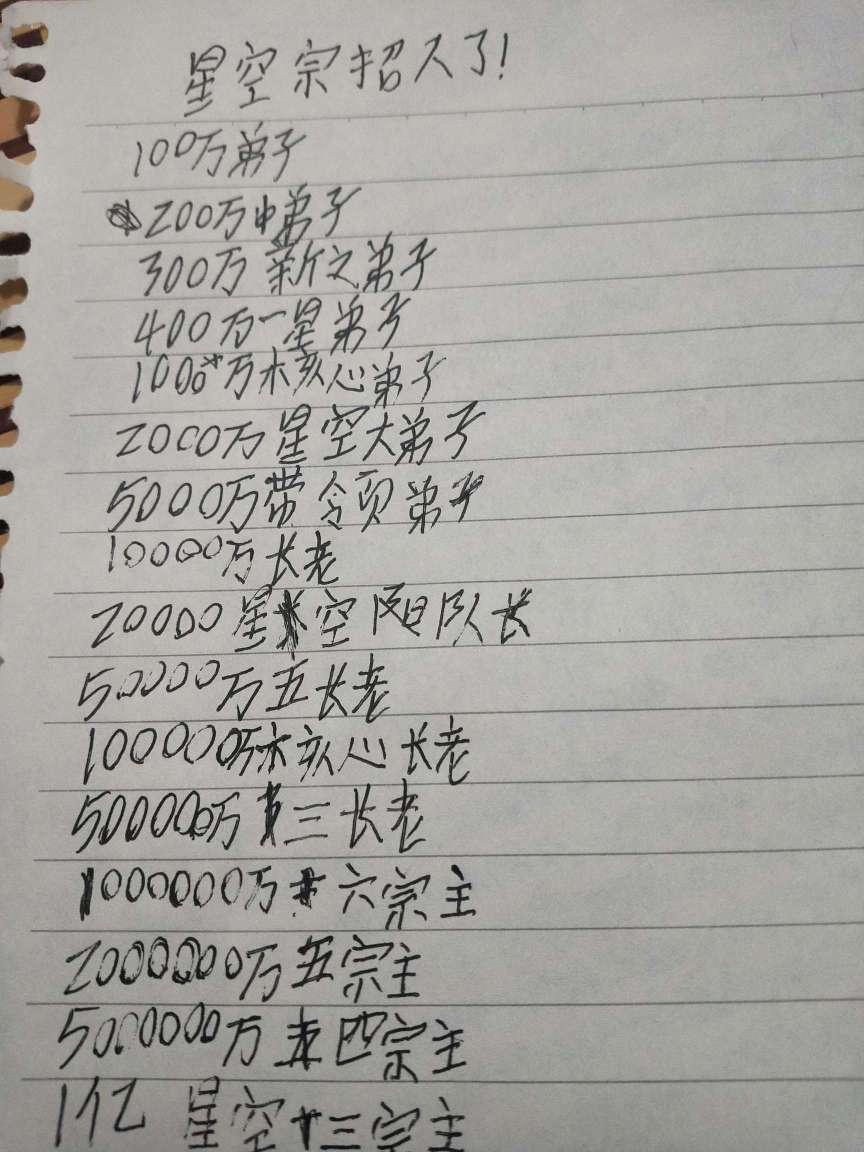 星空宗招人了!
100万弟子
200万中弟子
300万新之弟子
400万一星弟子
1000万核心弟子
2000万星空大弟子
5000万带领弟子
10000万长老
20000星空阻队长
50000万五长老
100000万核心长老
500000万三长老
1000000万六宗主
2000000万五宗主
5000000万四宗主
1亿 星空三宗主